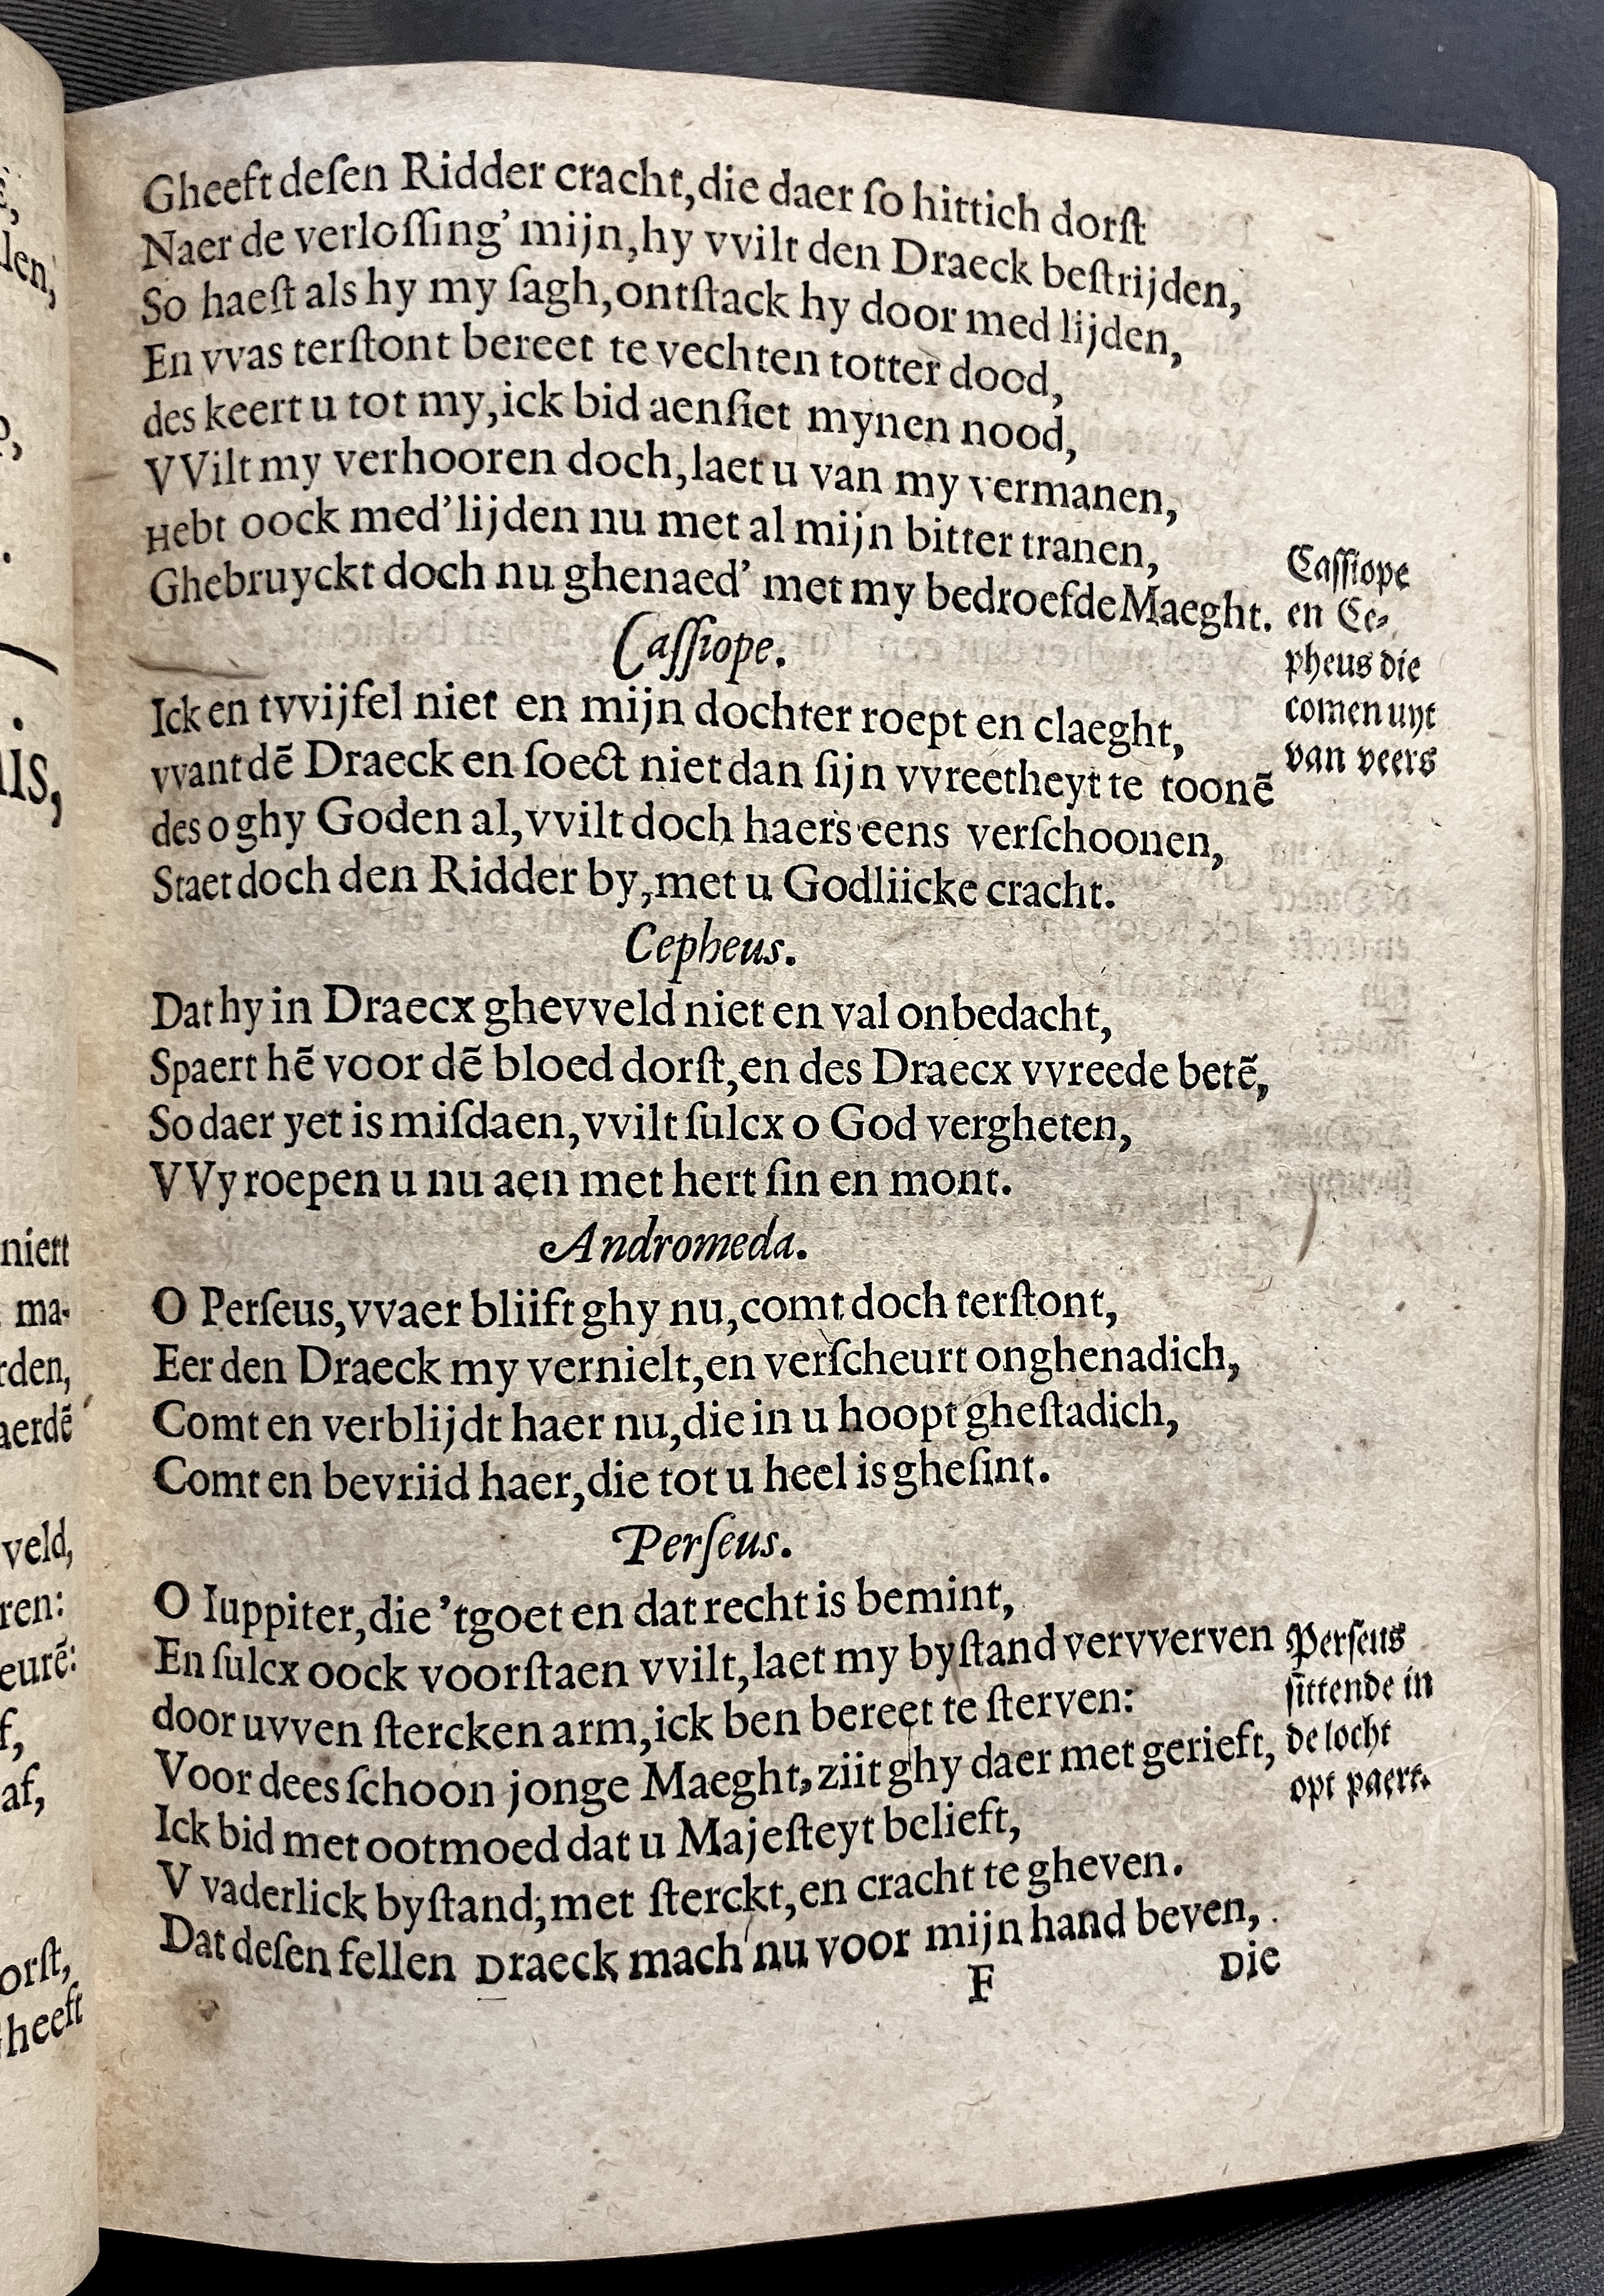 Gheeft deſen Ridder cracht, die daer ſo hittich dorſt
Naer de verloſſing’ mijn, hy vvilt den Draeck beſtrijden,
So haeſt als hy my ſagh, ontſtack hy door med lijden,
En vvas terſtont bereet te vechten totter dood,
des keert u tot my, ick bid aenſiet mynen nood,
VVilt my verhooren doch, laet u van my vermanen,
Hebt oock med’lijden nu met al mijn bitter tranen,
Ghebruyckt doch nu ghenaed’ met my bedroefde Maeght.
Caſſiope
en Ce-
pheus die
comen uyt
van veers
Caſſiope.
Ick en tvvijfel niet en mijn dochter roept en claeght,
vvant dẽ Draeck en ſoect niet dan ſijn vvreetheyt te toonẽ
des o ghy Goden al, vvilt doch haers eens verſchoonen,
Staet doch den Ridder by, met u Godliicke cracht.
Cepheus.
Dat hy in Draecx ghevveld niet en val onbedacht,
Spaert hẽ voor dẽ bloed dorſt, en des Draecx vvreede betẽ,
So daer yet is miſdaen, vvilt ſulcx o God vergheten,
VVy roepen u nu aen met hert ſin en mont.
Andromeda.
O Perſeus, vvaer bliift ghy nu, comt doch terſtont,
Eer den Draeck my vernielt, en verſcheurt onghenadich,
Comt en verblijdt haer nu, die in u hoopt gheſtadich,
Comt en bevriid haer, die tot u heel is gheſint.
Perſeus.
O Iuppiter, die ’tgoet en dat recht is bemint,
En ſulcx oock voorſtaen vvilt, laet my byſtand vervverven
door uvven ſtercken arm, ick ben bereet te ſterven:
Voor dees ſchoon jonge Maeght, ziit ghy daer met gerieft,
Perſeus
ſittende in
de locht
opt paert.
Ick bid met ootmoed dat u Majeſteyt belieft,
V vaderlick byſtand, met ſterckt, en cracht te gheven.
Dat deſen fellen Draeck mach nu voor mijn hand beven,
F
Die
niert
ma-
rden,
aerdẽ
veld,
ren:
eurẽ:
f,
af,
orſt,
heeft